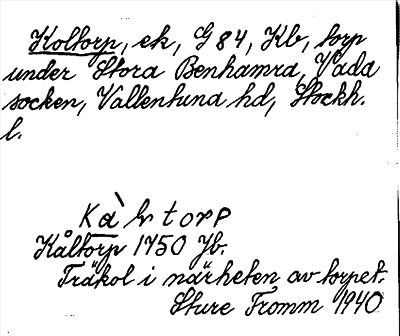 Koltorp, ek, G 84, Kb, torp
under Stora Benhamra, Vada
socken, Vallentuna hd, Stockh.
l.
Kåltorp 1750 Jb.
Träkol i närheten av torpet.
Sture Fromm 1940